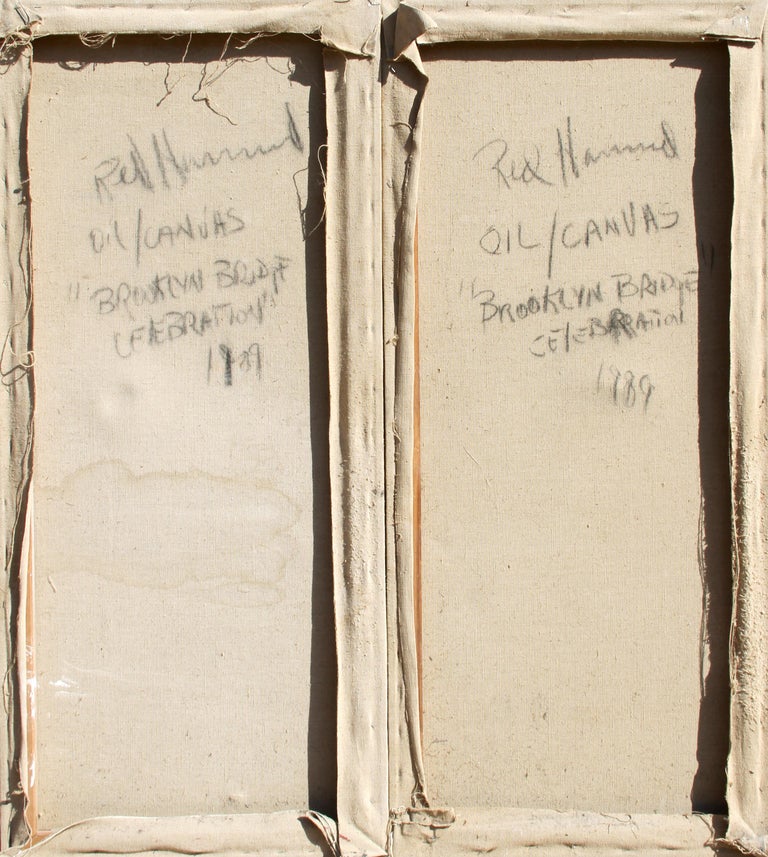 Red Hammond
OIL/CANVAS
"BROOKLYN BRIDGE
CELEBRATION"
1989
Red Hammond
OIL/CANVAS
"BROOKLYN BRIDGE"
CELEBRATION
1989